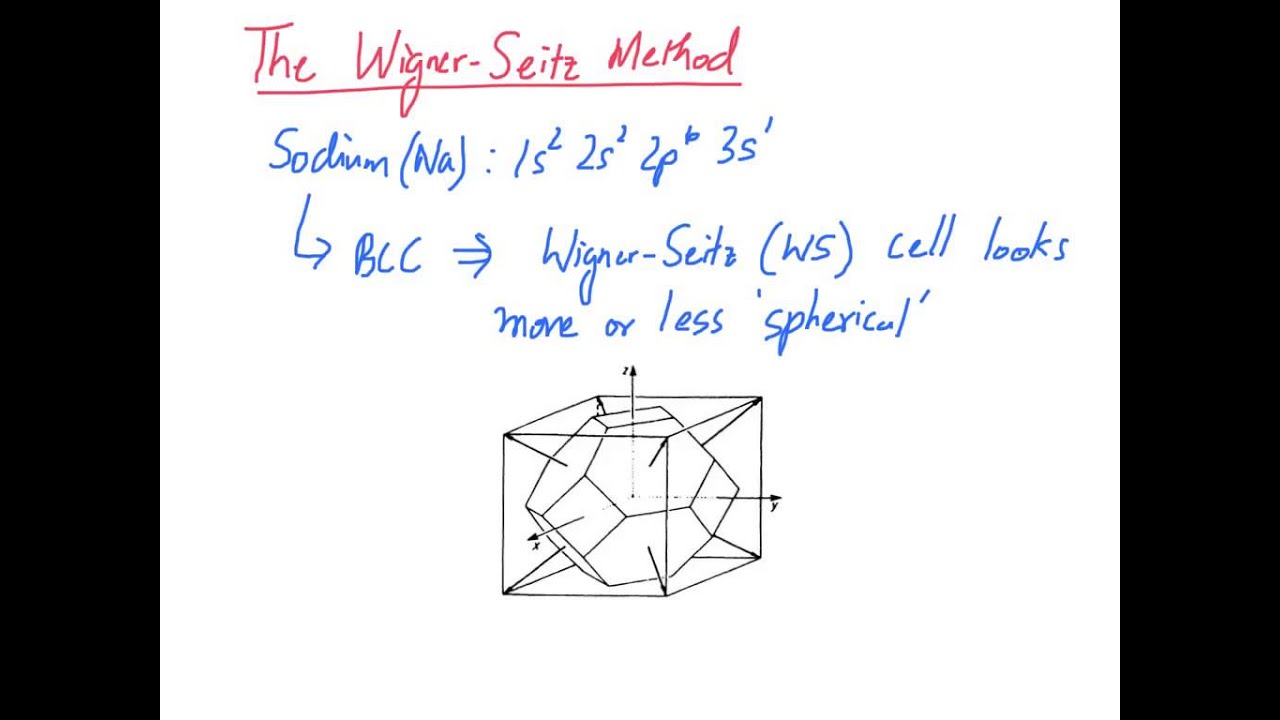 The Wigner-Seitz Method
Sodium (Na) : 1s² 2s² 2p⁶ 3s¹
↳ BCC ⇒ Wigner-Seitz (WS) cell looks
more or less 'spherical'
z
y
x